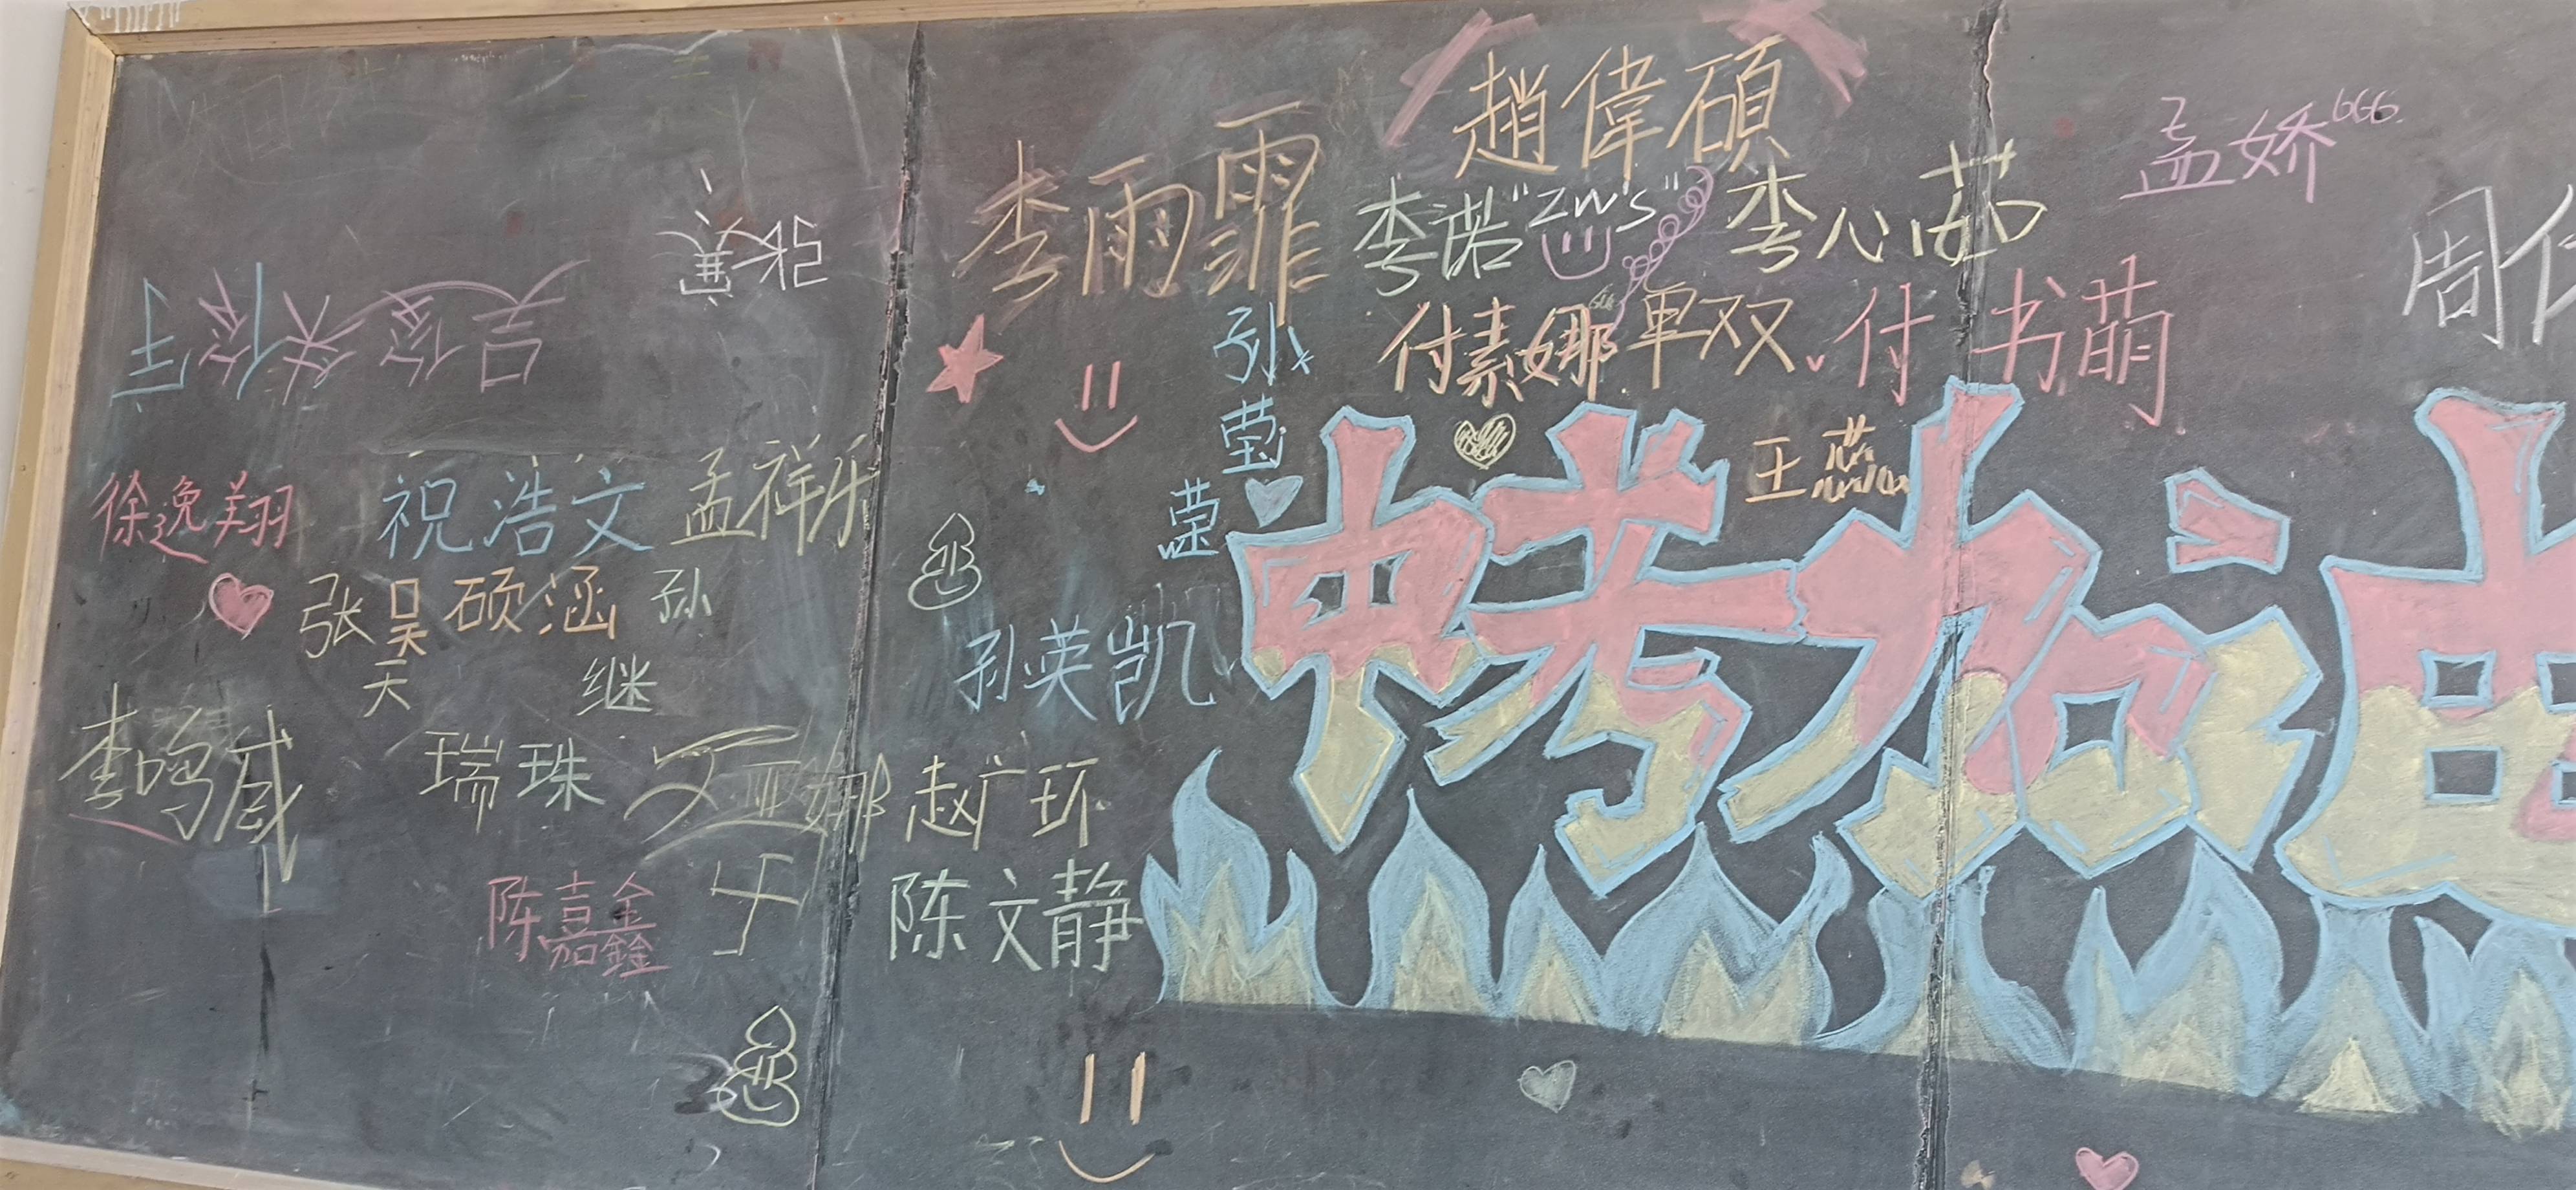 趙偉碩
孟娇666.
李雨霏
李诺"ZW's"
李心茹
付素娜
单双
付书萌
周
孙莹莹
王蕊
徐逸翔
祝浩文
孟祥乐
中考加油
张昊天
硕涵
孙继
孙英凯
李鸣威
瑞珠
文亚娜
赵广环
陈嘉鑫
陈文静